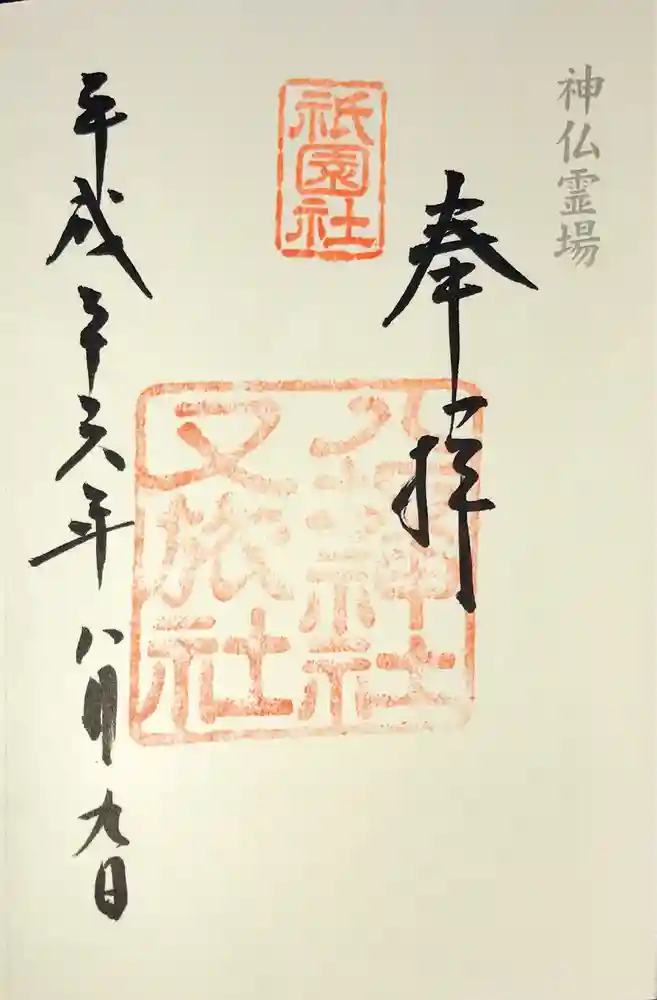 神仏霊場
奉拝
祇園社
八坂神社
又旅社
平成二十六年八月九日